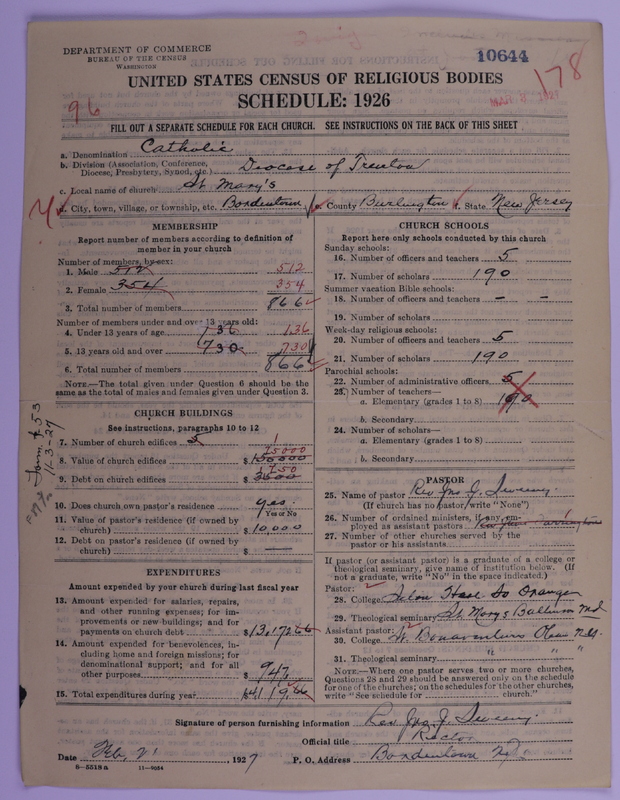 DEPARTMENT OF COMMERCE
BUREAU OF THE CENSUS
WASHINGTON
10644
178
UNITED STATES CENSUS OF RELIGIOUS BODIES
SCHEDULE: 1926
96
FILL OUT A SEPARATE SCHEDULE FOR EACH CHURCH. SEE INSTRUCTIONS ON THE BACK OF THIS SHEET
a. Denomination Catholic
b. Division (Association, Conference, Diocese, Presbytery, Synod, etc.) Diocese of Trenton
c. Local name of church St Mary's
d. City, town, village, or township, etc. Bordentown e. County Burlington f. State New Jersey
MEMBERSHIP
Report number of members according to definition of
member in your church
Number of members, by sex:
1. Male 512 512
2. Female 354 354
3. Total number of members 866
Number of members under and over 13 years old:
4. Under 13 years of age 136 136
5. 13 years old and over 730 730
6. Total number of members 866
NOTE.—The total given under Question 6 should be the
same as the total of males and females given under Question 3.
CHURCH BUILDINGS
See instructions, paragraphs 10 to 12
7. Number of church edifices 5 1
8. Value of church edifices $
9. Debt on church edifices $
10. Does church own pastor's residence yes.
Yes or No
11. Value of pastor's residence (if owned by
church) $10,000
12. Debt on pastor's residence (if owned by
church) $ —
EXPENDITURES
Amount expended by your church during last fiscal year
13. Amount expended for salaries, repairs,
and other running expenses; for im-
provements or new buildings; and for
payments on church debt $
14. Amount expended for benevolences, in-
cluding home and foreign missions; for
denominational support; and for all
other purposes $ 947
15. Total expenditures during year $
CHURCH SCHOOLS
Report here only schools conducted by this church
Sunday schools:
16. Number of officers and teachers 5
17. Number of scholars 190
Summer vacation Bible schools:
18. Number of officers and teachers – –
19. Number of scholars
Week-day religious schools:
20. Number of officers and teachers 5
21. Number of scholars 190
Parochial schools:
22. Number of administrative officers 5
23. Number of teachers—
a. Elementary (grades 1 to 8) 190
b. Secondary
24. Number of scholars—
a. Elementary (grades 1 to 8)
b. Secondary
PASTOR
25. Name of pastor Rev Jno J. Sweeny
(If church has no pastor write "None")
26. Number of ordained ministers, if any, em-
ployed as assistant pastors
27. Number of other churches served by the
pastor or his assistants
If pastor (or assistant pastor) is a graduate of a college or
theological seminary, give name of institution below. (If
not a graduate, write "No" in the space indicated.)
Pastor:
28. College Seton Hall So Orange
29. Theological seminary St Marys Baltimore Md
Assistant pastor:
30. College St. Bonaventure Olean N.Y.
31. Theological seminary " " "
NOTE.—Where one pastor serves two or more churches,
Questions 28 and 29 should be answered only on the schedule
for one of the churches; on the schedules for the other churches,
write "See schedule for church."
Signature of person furnishing information Rev. Jno J. Sweeny.
Official title Rector
Date Feb. 21 1927 P. O. Address Bordentown N.J.
8—5518a 11—9054
Form 453
11-3-27